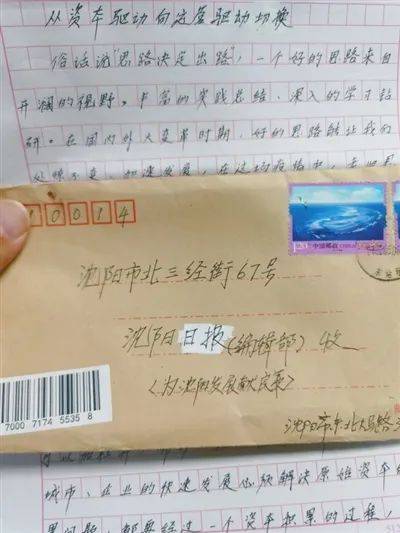 从资本驱动向运营驱动切换
俗话说“思路决定出路”，一个好的思路来自
开阔的视野。丰富的实践总结、深入的学习钻
研。在国内外大变革时期，好的思路能让我们
10014
1.20 中国邮政 CHINA
沈阳市北三经街67号
沈阳日报(编辑部) 收
〈为沈阳发展献良策〉
沈阳市东北大马路
7000 7174 5535 8
城市、企业的快速发展必须解决原始资本
果问题，都要经过一个资本积累的过程，